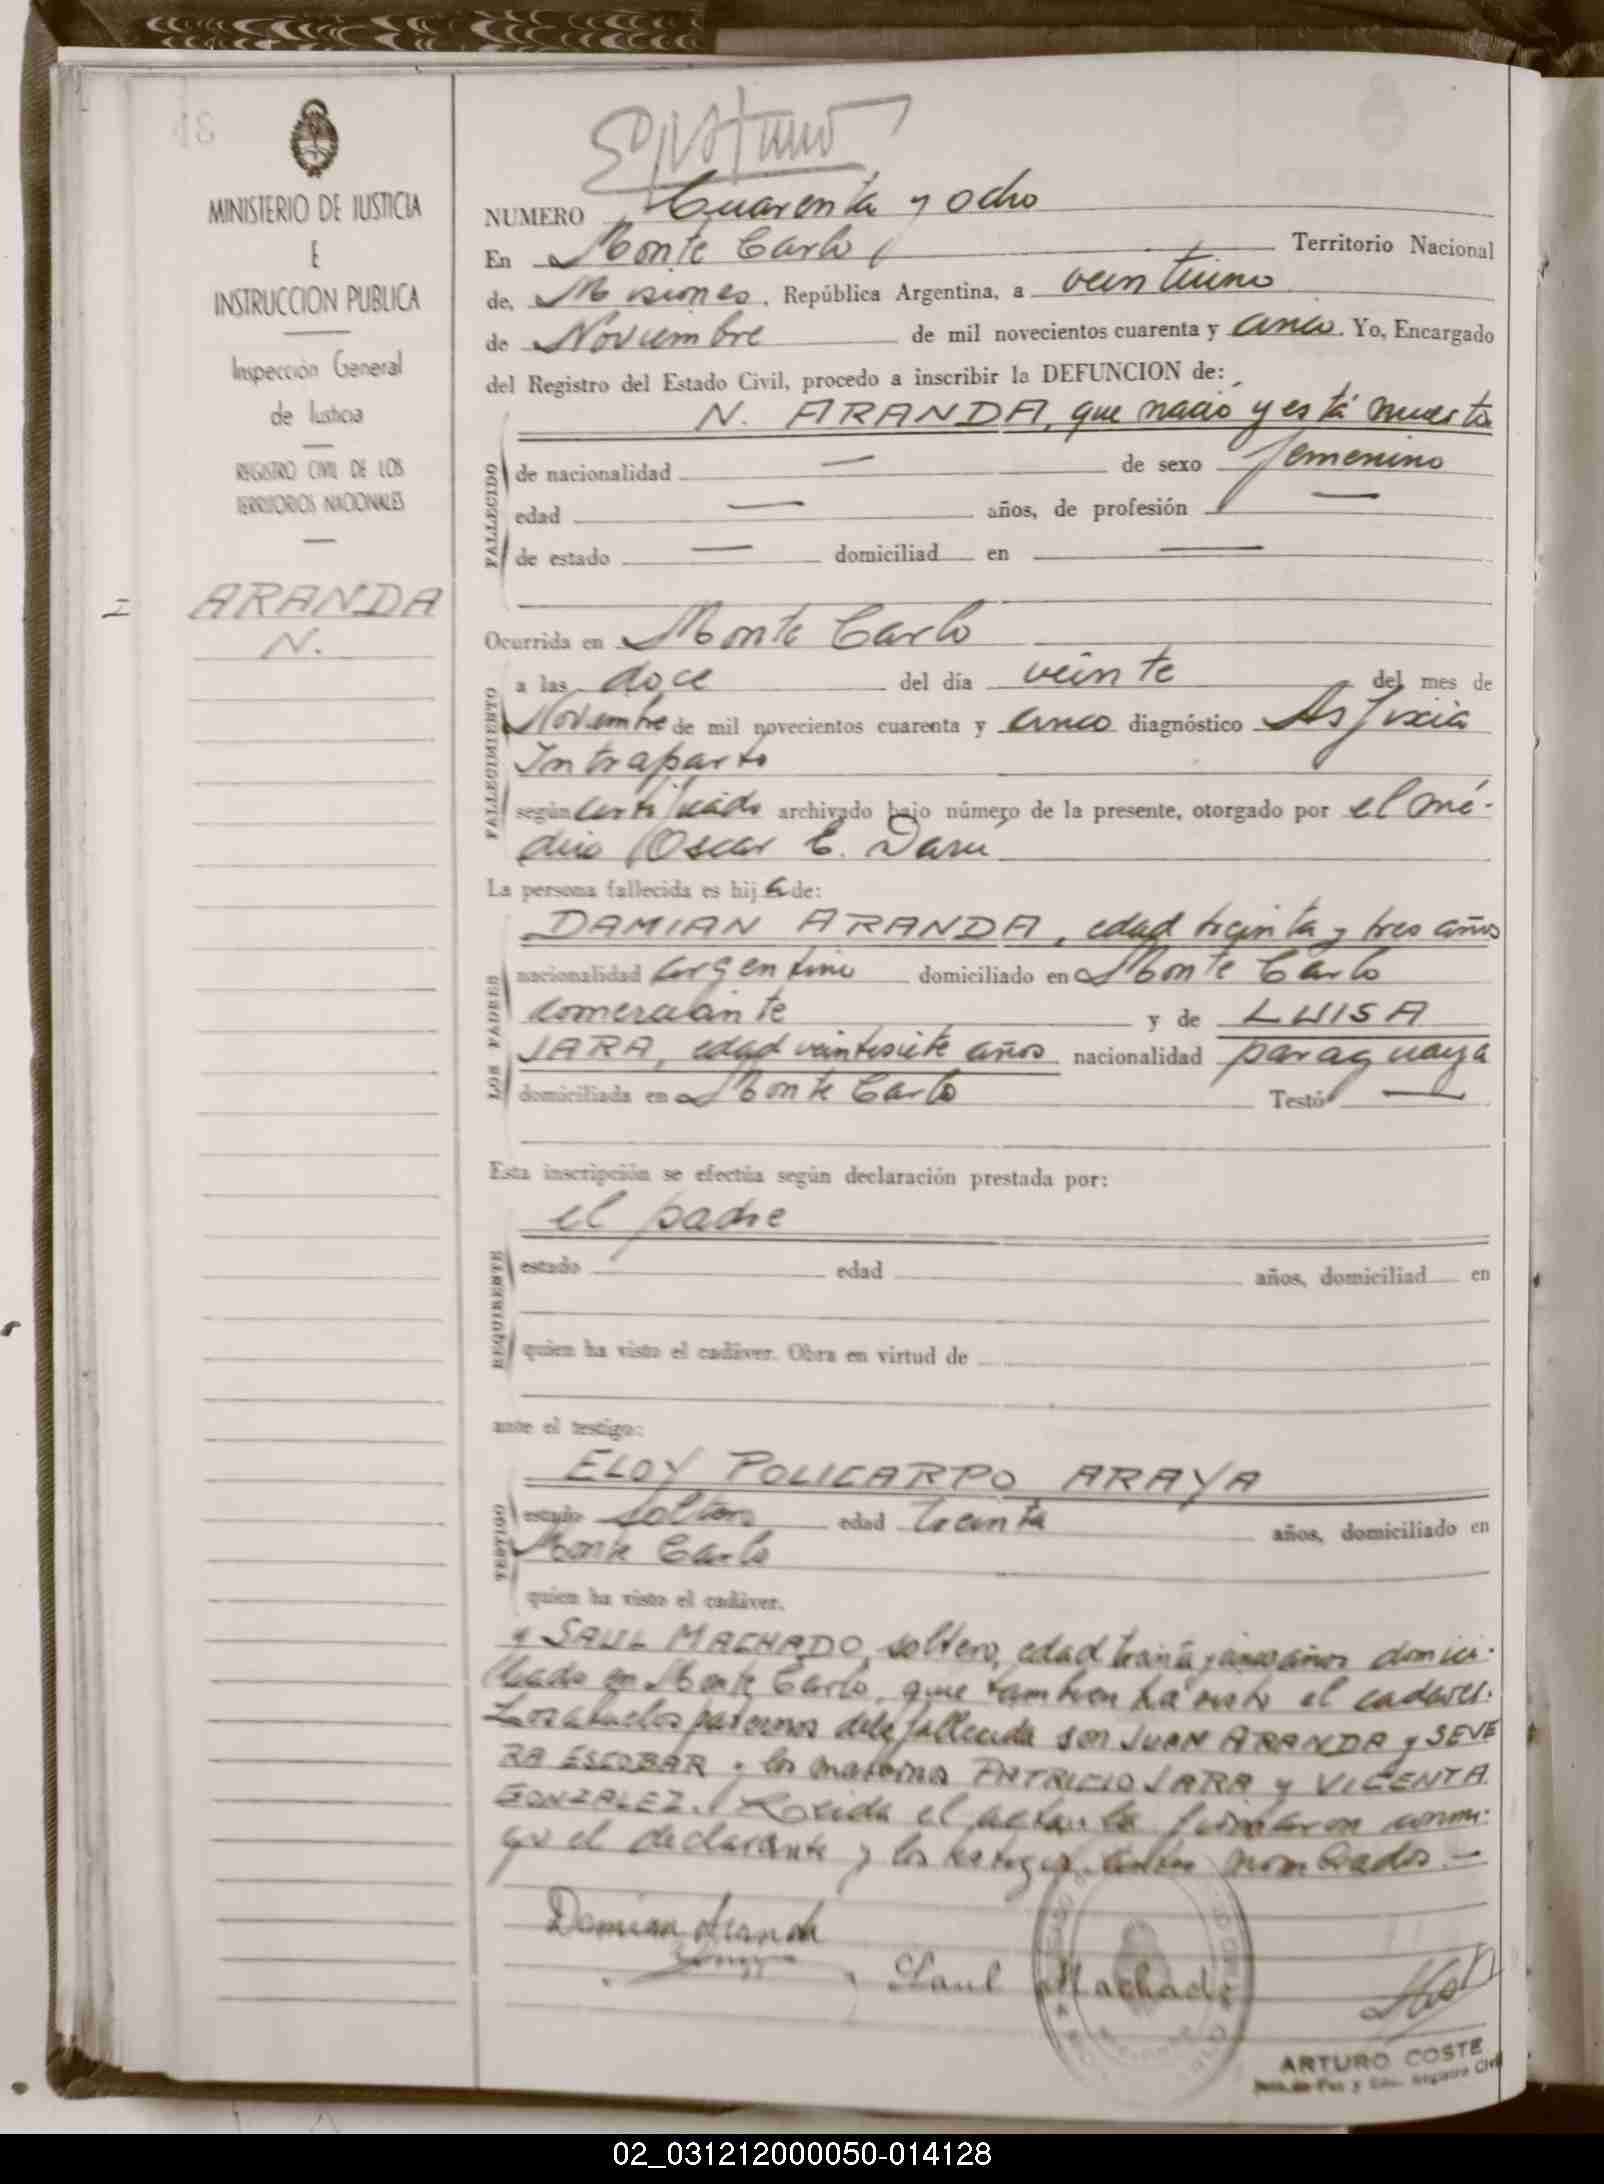 18
MINISTERIO DE JUSTICIA
E
INSTRUCCION PUBLICA
Inspección General
de Justicia
REGISTRO CIVIL DE LOS
TERRITORIOS NACIONALES
ARANDA
N.
NUMERO Cuarenta y ocho
En Monte Carlo Territorio Nacional
de, Misiones, República Argentina, a veintiuno
de Noviembre de mil novecientos cuarenta y cinco. Yo, Encargado
del Registro del Estado Civil, procedo a inscribir la DEFUNCION de:
N. ARANDA, que nació y está muerta
FALLECIDO
de nacionalidad — de sexo femenino
edad — años, de profesión —
de estado — domiciliad en —
Ocurrida en Monte Carlo
FALLECIMIENTO
a las doce del día veinte del mes de
Noviembre de mil novecientos cuarenta y cinco diagnóstico Asfixia
Intraparto
según certificado archivado bajo número de la presente, otorgado por el mé-
dico Oscar C. Daru
La persona fallecida es hij a de:
LOS PADRES
DAMIAN ARANDA, edad treinta y tres años
nacionalidad argentino domiciliado en Monte Carlo
comerciante y de LUISA
JARA, edad veintisiete años nacionalidad paraguaya
domiciliada en Monte Carlo Testó —
Esta inscripción se efectúa según declaración prestada por:
el padre
REQUIRENTE
estado edad años, domiciliad en
quien ha visto el cadáver. Obra en virtud de
ante el testigo:
TESTIGO
ELOY POLICARPO ARAYA
estado soltero edad treinta años, domiciliado en
Monte Carlo
quien ha visto el cadáver.
y SAUL MACHADO, soltero, edad treinta y cinco años domici-
liado en Monte Carlo, que tambien ha visto el cadaver.
Los abuelos paternos dela fallecida son JUAN ARANDA y SEVE
RA ESCOBAR y los maternos PATRICIO JARA y VICENTA
GONZALEZ. Leida el acta, la firmaron conmi-
go el declarante y los testigos antes nombrados. —
Damian Aranda
Saul Machado
ARTURO COSTE
Juez de Paz y Enc. Registro Civil
02_031212000050-014128